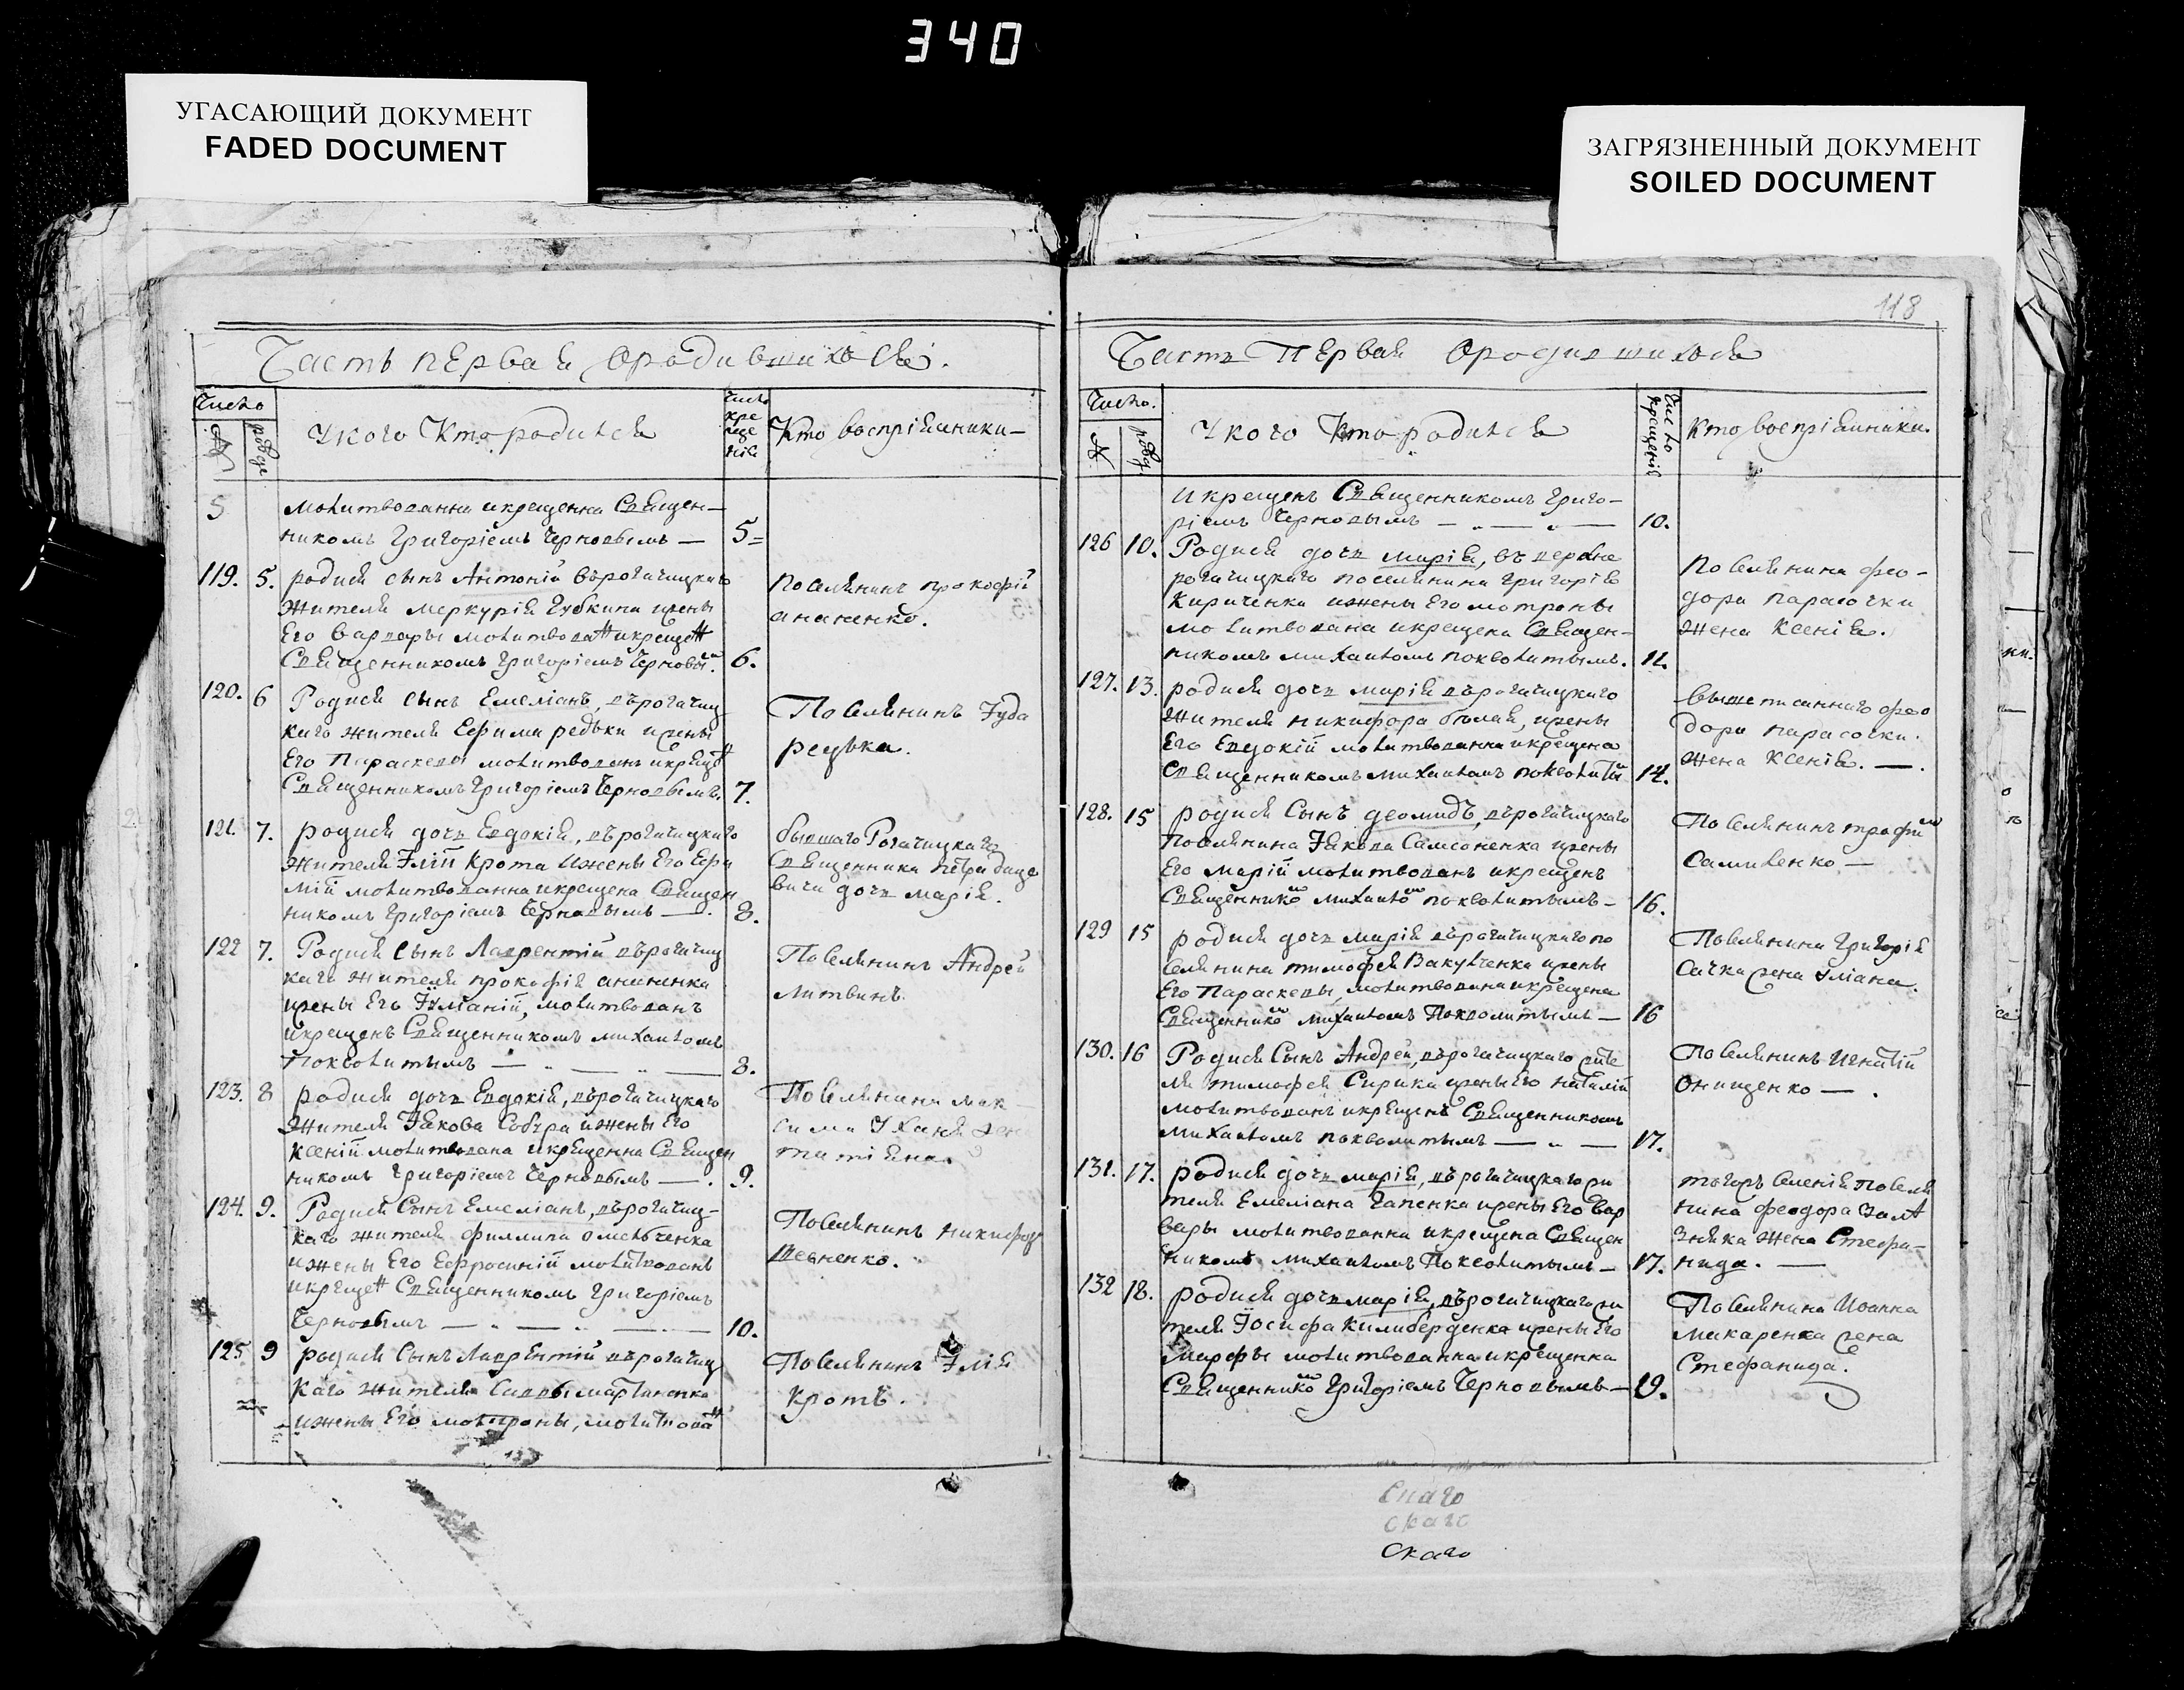 340
УГАСАЮЩИЙ ДОКУМЕНТ
FADED DOCUMENT
ЗАГРЯЗНЕННЫЙ ДОКУМЕНТ
SOILED DOCUMENT
Часть первая ородившихся.
Число
№
рожде
укого Кто родился
число
кре
ще
нія
Кто воспріемники
5
молитвованна икрещенна Священ-
никомъ Григоріемъ Черновымъ —
5=
119. 5. родися сынъ Антоній въ рогачицкаго
жителя Меркурія Губкина ижены
Его Варвары молитвованъ икрещенъ
Священникомъ Григоріемъ Черновым. 6.
Поселянинъ прокофій
ананенко.
120. 6 Родися сынъ Емеліанъ, въ рогачиц
каго жителя Ефима редьки ижены
Его Параскевы молитвованъ икрещен
Священникомъ Григоріемъ Черновымъ. 7.
Поселянинъ Іуда
редька.
121. 7. родися дочь Евдокія, въ рогачицкаго
жителя Іліи Крота Ижены Его Ефи
міи молитвованна икрещена Священ
никомъ Григоріемъ Черновымъ —. 8.
бывшаго Рогачицкаго
Священника петра
дочь Марія.
122 7. Родися Сынъ Лаврентій въ рогачиц
каго жителя прокофія ананенка
ижены Его Іуліаніи, молитвованъ
икрещенъ Священникомъ михаиломъ
Поквалитымъ — „ — „ — 8.
Поселянинъ Андрей
литвинъ.
123. 8 родися дочь Евдокія, въ рогачицкаго
жителя Іакова Собура ижены Его
Ксеніи молитвована икрещенна Священ
никомъ Григоріемъ Черновымъ —. 9.
Поселянина мак
сима
124. 9. Родися Сынъ Емеліанъ, въ рогачиц-
каго жителя филлипа омельченка
ижены Его Ефросиніи молитвованъ
икрещен Священникомъ Григоріемъ
Черновымъ — „ — „ — 10.
Поселянинъ никифор
Шевченко.
125. 9 родися Сынъ Лаврентій въ рогачиц
каго жителя Саввы мартиненка
ижены Его мотроны, молитвован
Поселянинъ Ілія
Кротъ.
118
Часть Первая Ородившихся
Число.
№
рожд.
Укого Кто родился
Число
крещенія
Кто воспріемники.
Икрещенъ Священникомъ Григо-
ріемъ Черновымъ — „ — „ — 10.
126 10. Родися дочь марія, въ верхне
рогачицкаго поселянина Григорія
Кириченка ижены Его мотроны
молитвована икрещена Священ-
никомъ михаиломъ поквалитымъ. 11.
Поселянина фео-
дора парасочки
жена Ксенія.
127. 13. родися дочь марія въ рогачицкаго
жителя никифора бѣлая, ижены
Его Евдокіи молитвованна икрещена
Священникомъ михаиломъ поквалитым 14.
вышеписаннаго фео
дора парасочки.
жена Ксенія. —.
128. 15 родися Сынъ деомидъ, въ рогачицкаго
Поселянина Іакова Самсоненка ижены
Его Маріи молитвованъ икрещенъ
Священником михаилом поквалитымъ — 16.
Поселянинъ трофим
Самиленко —
129 15 родися дочь марія въ рогачицкаго по
селянина тимофея Вакуленка ижены
Его Параскевы, молитвована икрещена
Священником михаиломъ Поквалитымъ — 16
Поселянина Григорія
Сачка жена Уліана.
130. 16 Родися Сынъ Андрей, въ рогачицкаго жите
ля тимофея Сирика ижены Его наталіи
молитвованъ икрещенъ Священникомъ
михаиломъ поквалитымъ — „ — 17.
Поселянинъ Игнатій
Онищенко — .
131. 17. родися дочь марія, въ рогачицкаго жи
теля Емеліана Чапенка ижены Его Вар
вары молитвованна икрещена Священ
никомъ михаиломъ Поквалитымъ — 17.
тогожъ селенія поселя
нина феодора
жена Стефа-
нида. —
132 18. родися дочь марія, въ рогачицкаго жи
теля Іосифа Килиберденка ижены Его
Марфы молитвованна икрещенна
Священником Григоріемъ Черновымъ — 19.
Поселянина Иоанна
макаренка жена
Стефанида.
Скаго
скаго
Скаго